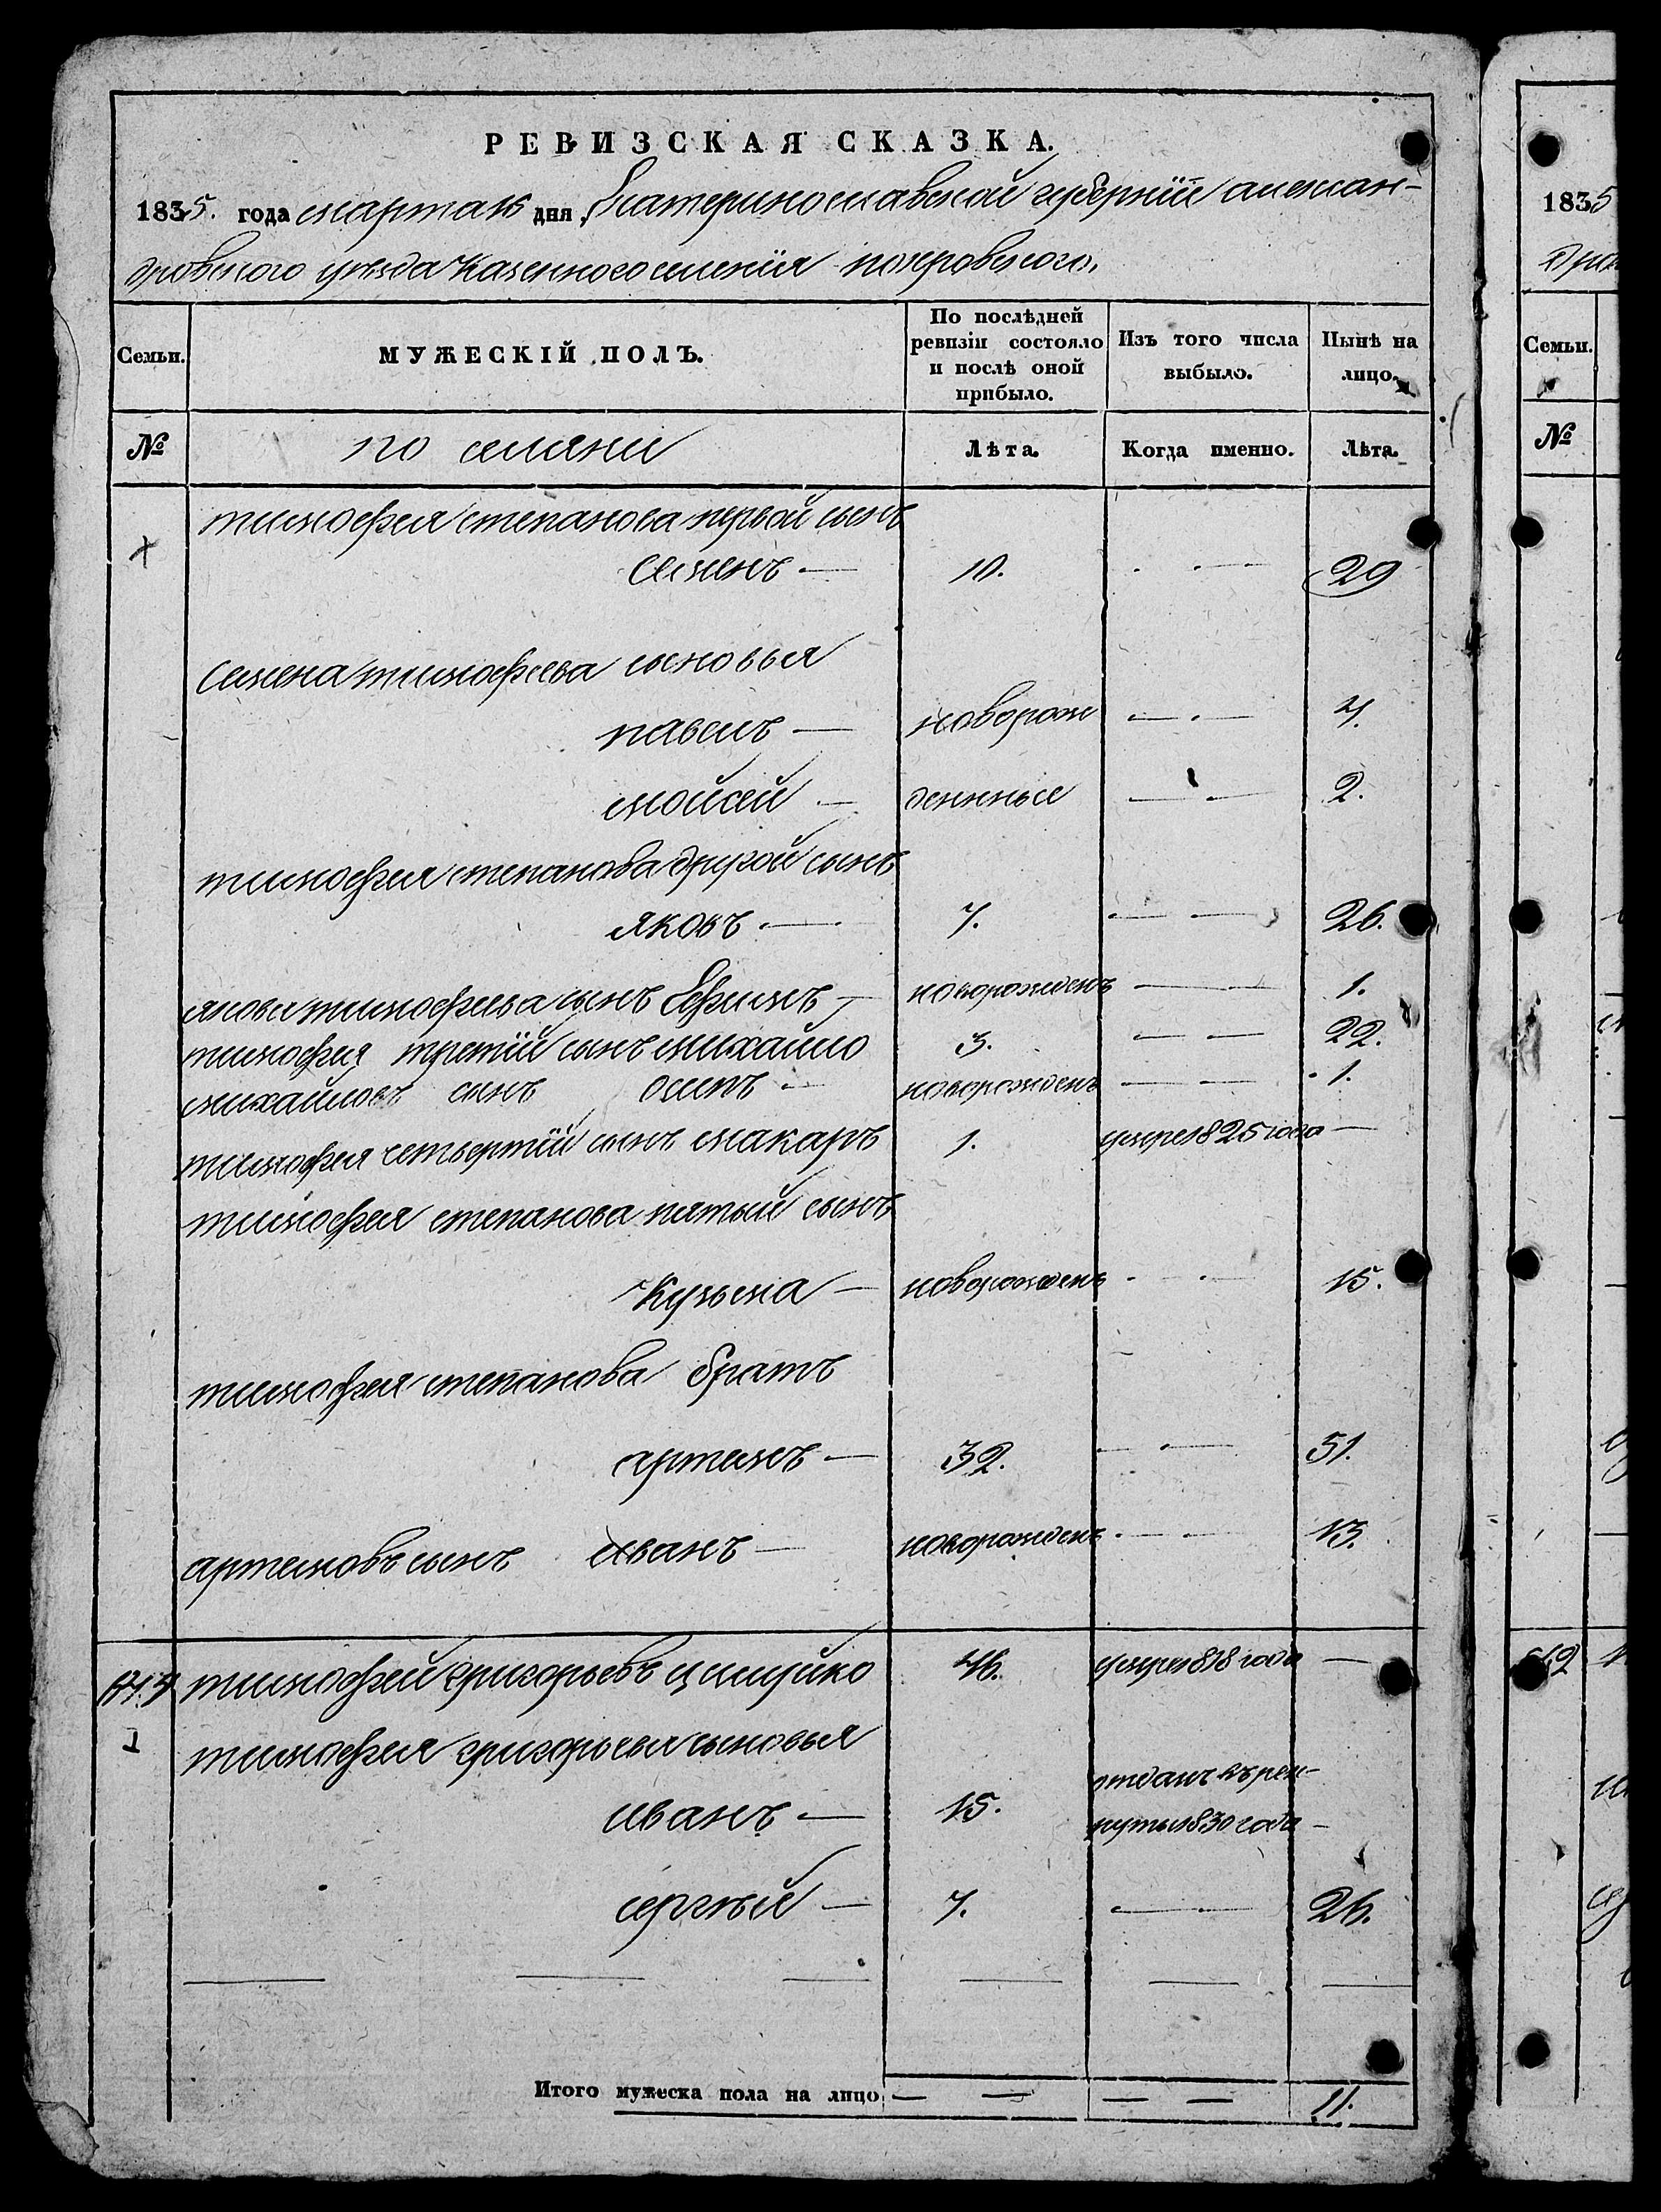 РЕВИЗСКАЯ СКАЗКА.
1835. года марта 15 дня, Екатеринославской губернїи алексан-
дровского уѣзда Казенного селенїя покровского.
Семьи. МУЖЕСКІЙ ПОЛЪ. По послѣдней ревизіи состояло и послѣ оной прибыло. Изъ того числа выбыло. Нынѣ на лицо.
№ Лѣта. Когда именно. Лѣта.
тимофея степанова первой сынъ
семенъ — 10. 29
семена тимофеева сыновья
павелъ — новорож 4.
мойсей — денные 2.
тимофея степанова другой сынъ
яковъ — 7. 26.
якова тимофеева сынъ Ефимъ — новорожденъ 1.
тимофея третїй сынъ михайло 3. 22.
михайловъ сынъ осипъ — новорожденъ 1.
тимофея четвертїй сынъ макаръ 1. умре 1825 года —
тимофея степанова пятый сынъ
Кузьма — новорожденъ 15.
тимофея степанова братъ
артемъ — 32. 51.
артемовъ сынъ иванъ — новорожденъ 13.
тимофей григорьевъ 46. умре 1818 года —
тимофея григорьева сыновья
иванъ — 15. отданъ въ рек-
руты 1830 года —
сергѣй — 7. 26.
Итого мужеска пола на лицо 11.
1835
Семьи.
№